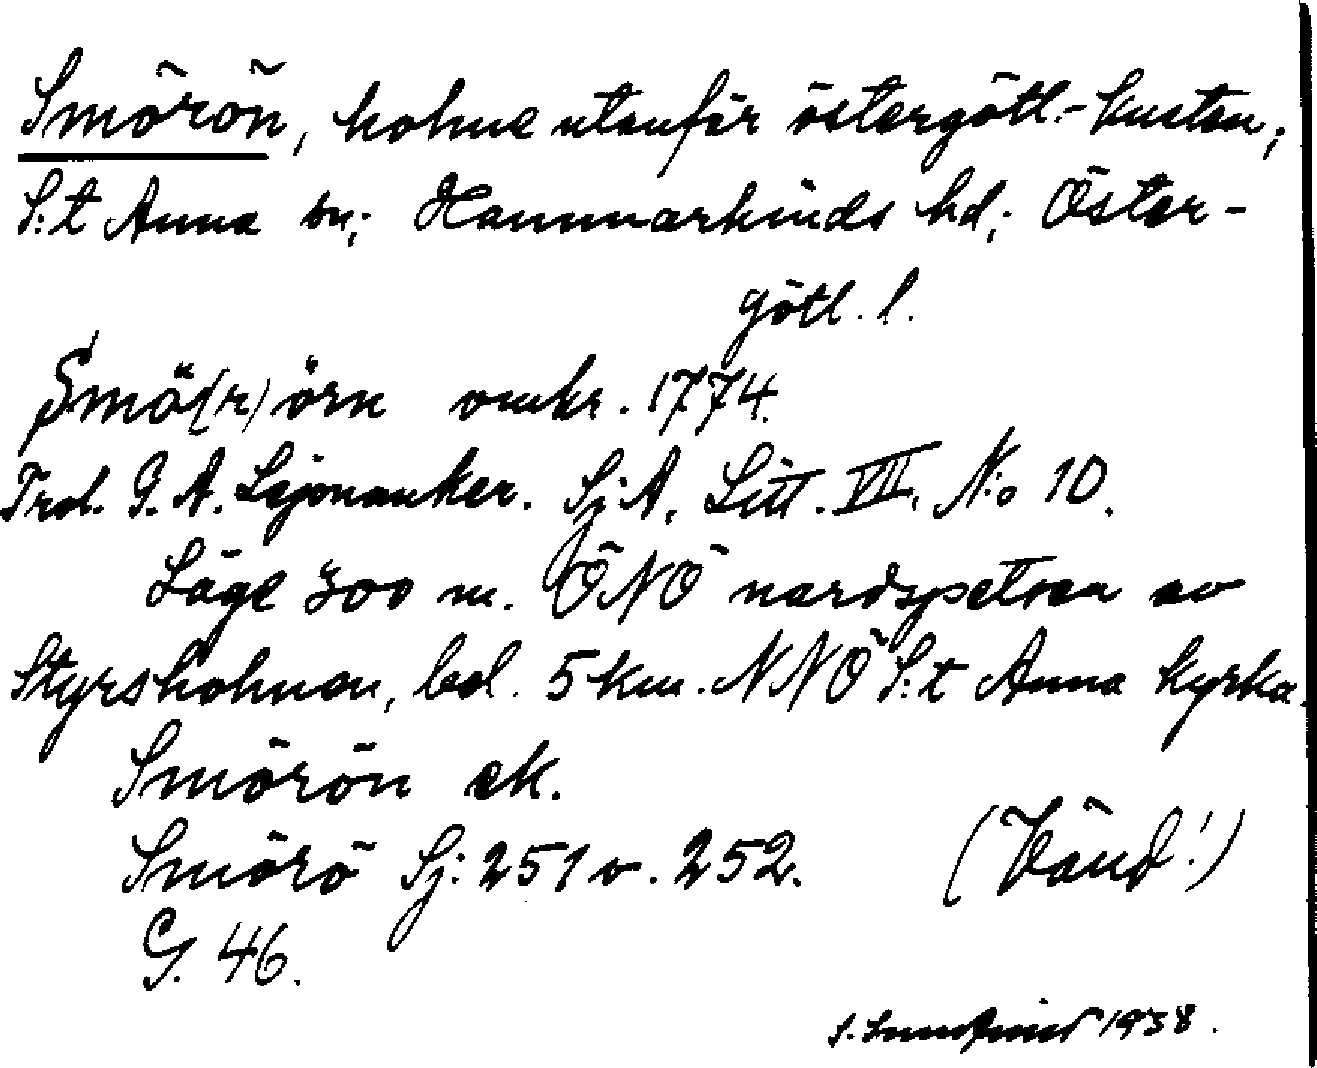 Smörön, holme utanför östergötl.-kusten;
S:t Anna sn; Hammarkinds hd; Öster-
götl. l.
Smö(r)örn omkr. 1774.
Trol. G. A. Lejonanker. Sj.A. Litt. VII. N:o 10.
Läge 300 m. ÖNÖ nordspetsen av
Styrsholmen, bel. 5 km. NNÖ S:t Anna kyrka.
Smörön ek.
Smörö Sj: 251 o. 252. (Vänd!)
G. 46.
1938.